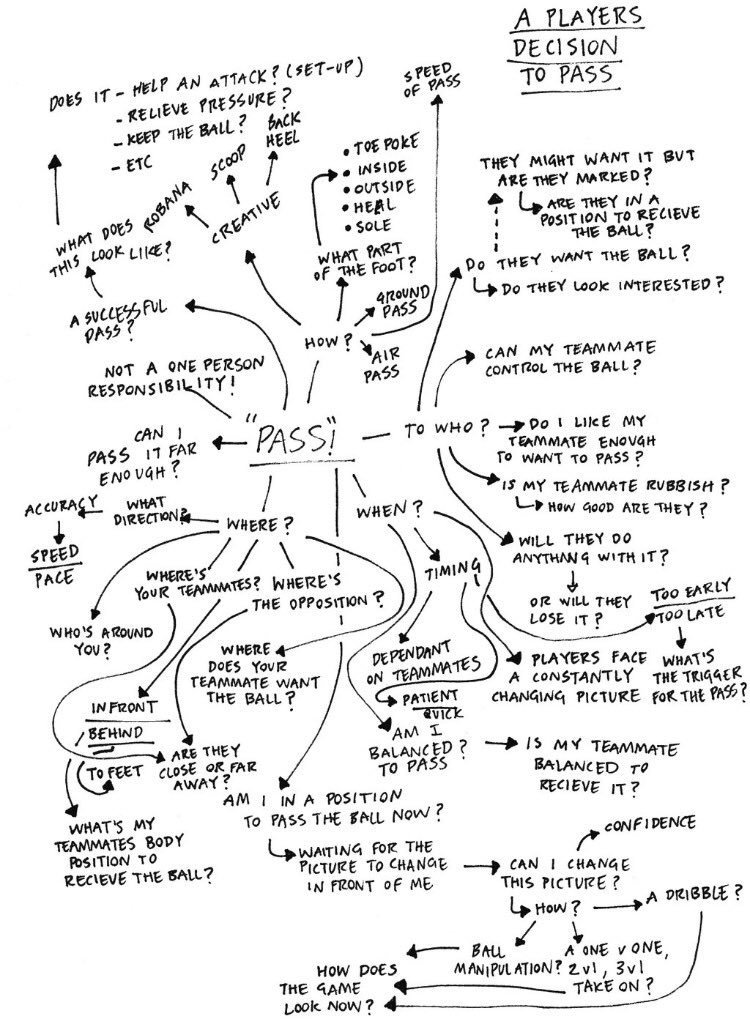 A PLAYERS
DECISION
TO PASS
DOES IT - HELP AN ATTACK? (SET-UP)
- RELIEVE PRESSURE?
- KEEP THE BALL?
- ETC
WHAT DOES
THIS LOOK LIKE?
A SUCCESSFUL
PASS?
ROBANA
SCOOP
BACK
HEEL
CREATIVE
SPEED
OF PASS
• TOE POKE
• INSIDE
• OUTSIDE
• HEAL
• SOLE
WHAT PART
OF THE FOOT?
HOW?
GROUND
PASS
AIR
PASS
THEY MIGHT WANT IT BUT
ARE THEY MARKED?
ARE THEY IN A
POSITION TO RECIEVE
THE BALL?
DO THEY WANT THE BALL?
DO THEY LOOK INTERESTED?
CAN MY TEAMMATE
CONTROL THE BALL?
NOT A ONE PERSON
RESPONSIBILITY!
"PASS!"
TO WHO?
DO I LIKE MY
TEAMMATE ENOUGH
TO WANT TO PASS?
IS MY TEAMMATE RUBBISH?
HOW GOOD ARE THEY?
WILL THEY DO
ANYTHNG WITH IT?
OR WILL THEY
LOSE IT?
CAN I
PASS IT FAR
ENOUGH?
WHERE?
WHAT
DIRECTION?
ACCURACY
SPEED
PACE
WHO'S AROUND
YOU?
WHERE'S
YOUR TEAMMATES?
WHERE'S
THE OPPOSITION?
WHERE
DOES YOUR
TEAMMATE WANT
THE BALL?
IN FRONT
BEHIND
TO FEET
ARE THEY
CLOSE OR FAR
AWAY?
WHAT'S MY
TEAMMATES BODY
POSITION TO
RECIEVE THE BALL?
WHEN?
TIMING
TOO EARLY
TOO LATE
WHAT'S
THE TRIGGER
FOR THE PASS?
DEPENDANT
ON TEAMMATES
PATIENT
QUICK
PLAYERS FACE
A CONSTANTLY
CHANGING PICTURE
AM I
BALANCED
TO PASS?
IS MY TEAMMATE
BALANCED TO
RECIEVE IT?
AM I IN A POSITION
TO PASS THE BALL NOW?
WAITING FOR THE
PICTURE TO CHANGE
IN FRONT OF ME
CAN I CHANGE
THIS PICTURE?
CONFIDENCE
HOW?
A DRIBBLE?
BALL
MANIPULATION?
A ONE V ONE,
2v1, 3v1
TAKE ON?
HOW DOES
THE GAME
LOOK NOW?